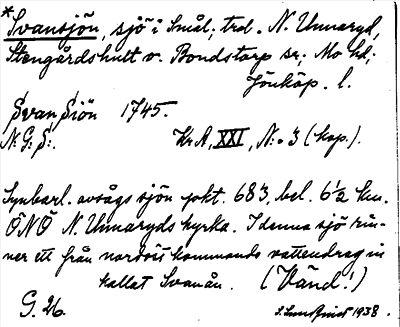 * Svansjön, sjö i Smål, trol. N. Unnaryd,
Stengårdshult o. Bondstorp sr; Mo hd;
Jönköp. l.
Svan Siön 1745.
N. G: S:. KrA, XXI, No 3 (kop.).
Synbarl. avsågs sjön pkt. 683, bel. 6 1/2 km.
ÖNÖ N. Unnaryds kyrka. I denna sjö rin-
ner ett från nordost kommande vattendrag in
kallat Svanån. (Vänd!)
G. 26. 1938.